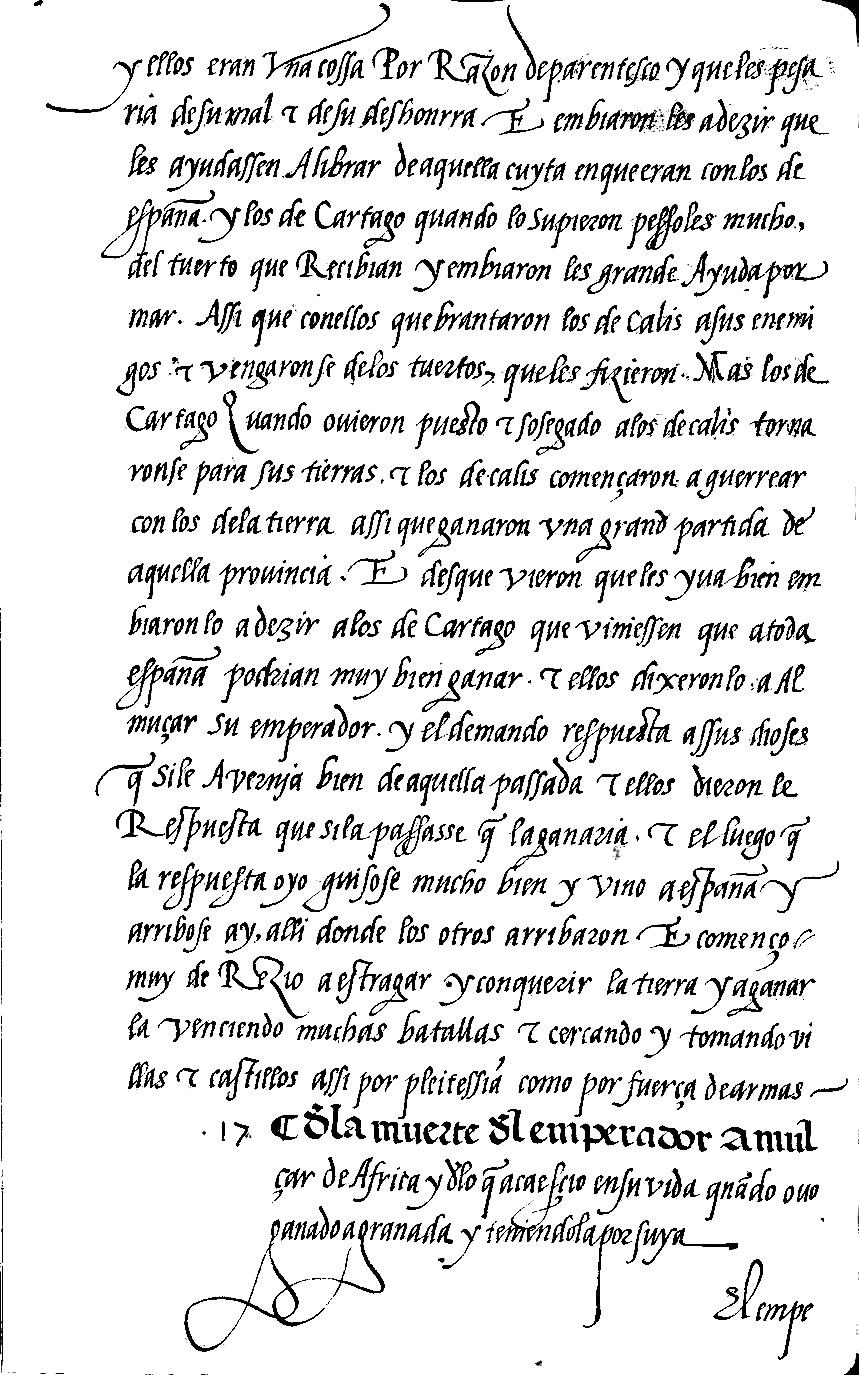 y ellos eran Vna cossa Por Razon deparentesco y queles pesa
ria desumal τ desu deshonrra. E embiaron les adezir que
les ayudassen Alibrar deaquella cuyta enque eran conlos de
españa. y los de Cartago quando lo supieron pessoles mucho,
del tuerto que Recibian y embiaron les grande Ayuda por
mar. Assi que conellos quebrantaron los de Calis asus enemi
gos τ vengaronse delos tuertos, queles fizieron. Mas los de
Cartago Quando ovieron puesto τ sosegado alos decalis torna
ronse para sus tierras. τ los decalis començaron aguerrear
conlos delatierra assi queganaron vna grand partida de
aquella provincia. E desque vieron queles yua bien em
biaronlo adezir alos de Cartago que viniessen que atoda
españa podrian muy bien ganar. τ ellos dixeronlo a Al
muçar su emperador. y el demando respuesta assus dioses
q̃ sile Avernja bien deaquella passada τ ellos dieron le
Respuesta que sila passasse q̃ laganaria. τ el luego q̃
la respuesta oyo guisose mucho bien y vino aespaña y
arribose ay, alli donde los otros arribaron E començo
muy de Rezio aestragar y conquerir la tierra yaganar
la venciendo muchas batallas τ cercando y tomando vi
llas τ castillos assi por pleitessia como por fuerça dearmas
.17. ¶ Đla muerte đl emperador Amil
çar de Africa y đlo q̃ acaescio ensu vida quãdo ovo
ganado agranada y teniendola por suya
El empe